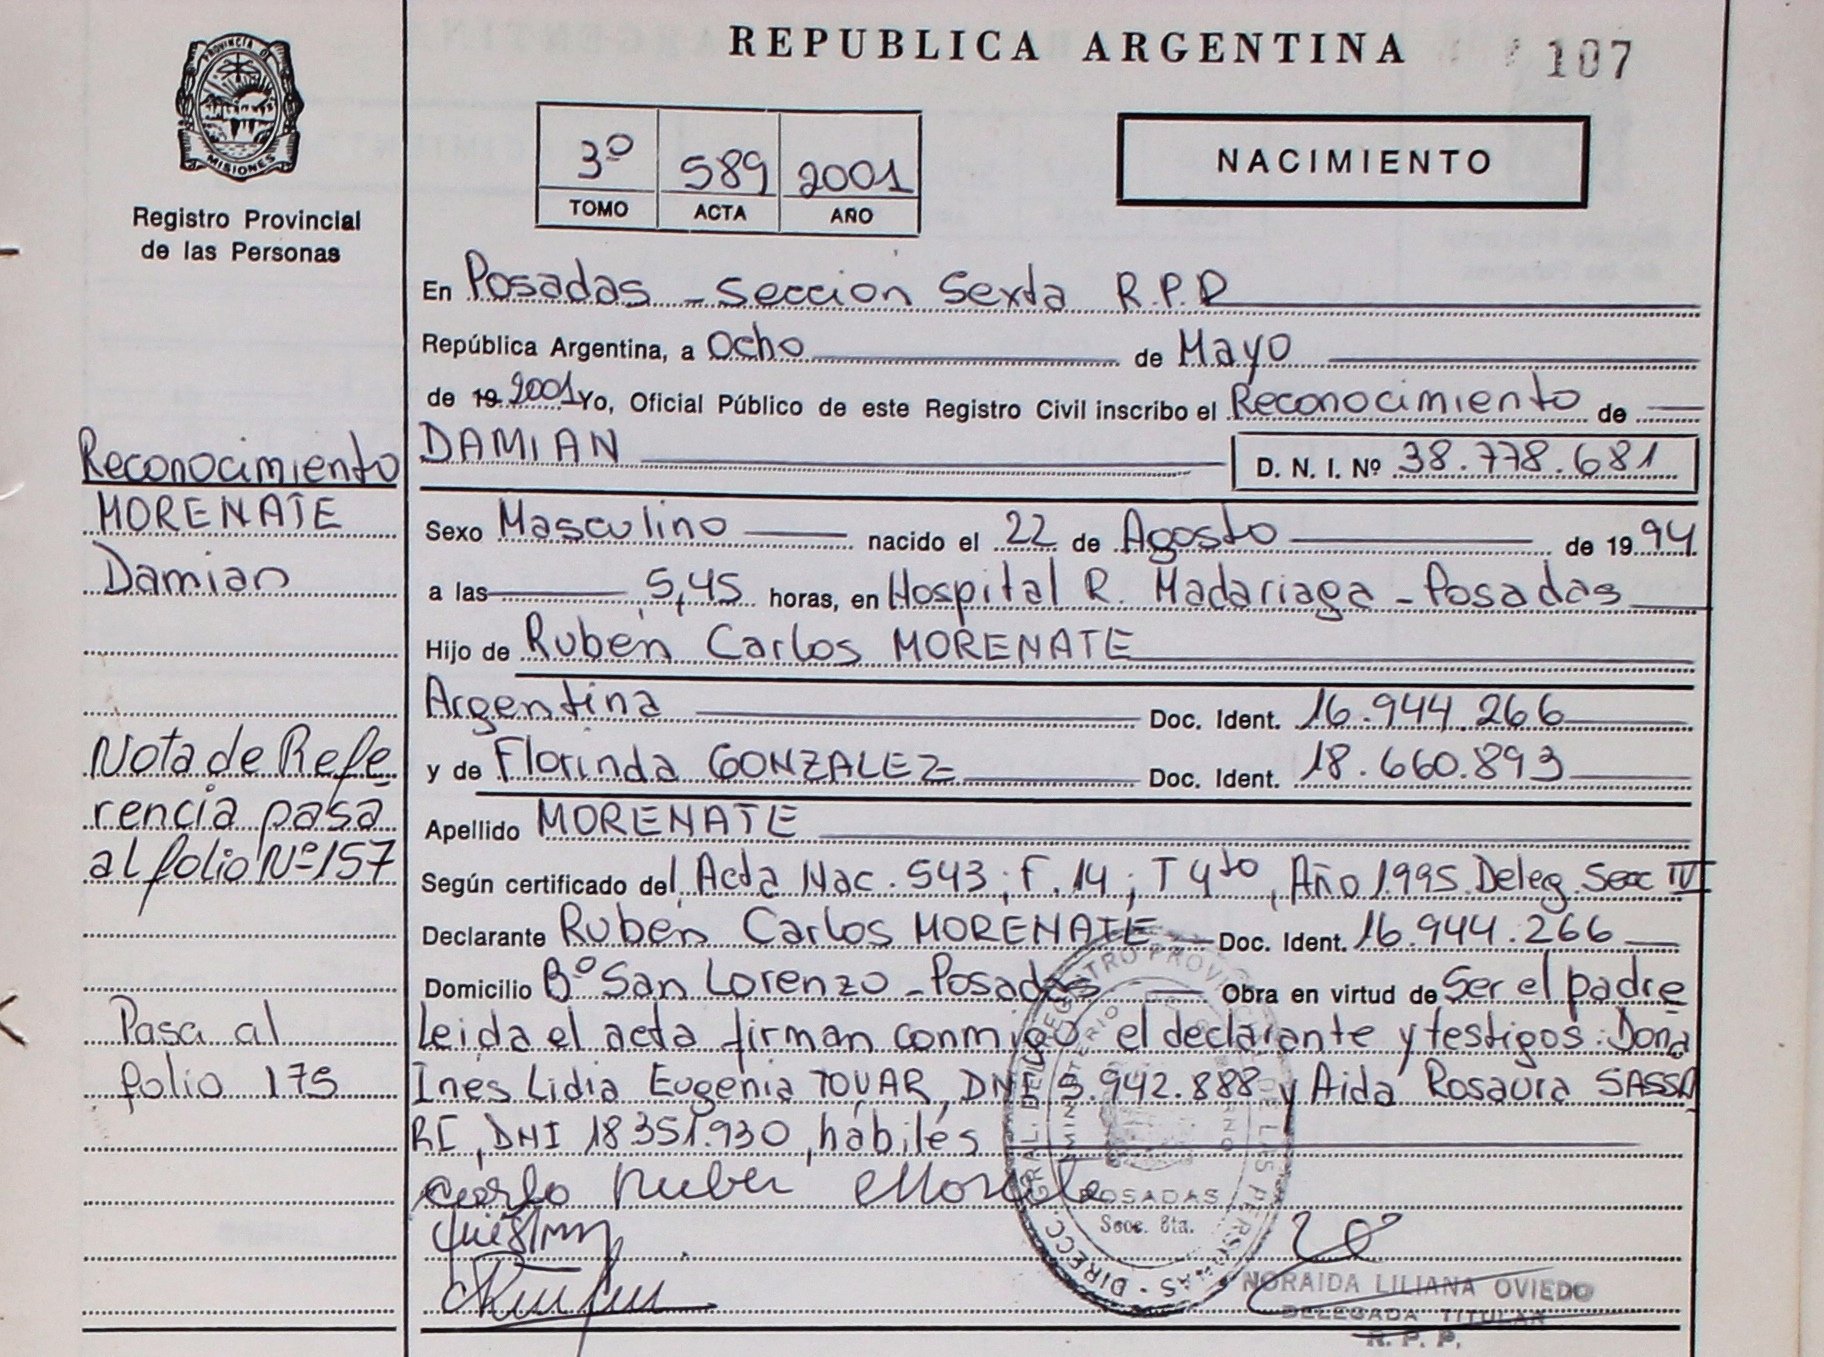 REPUBLICA ARGENTINA
107
PROVINCIA DE
MISIONES
Registro Provincial
de las Personas
3º 589 2001
TOMO ACTA AÑO
NACIMIENTO
En Posadas - Sección Sexta R.P.P
República Argentina, a Ocho de Mayo
de 19 2001 Yo, Oficial Público de este Registro Civil inscribo el Reconocimiento de
DAMIAN D. N. I. Nº 38.778.681
Sexo Masculino nacido el 22 de Agosto de 1994
a las 5,45 horas, en Hospital R. Madariaga - Posadas
Hijo de Ruben Carlos MORENATE
Argentina Doc. Ident. 16.944.266
y de Florinda GONZALEZ Doc. Ident. 18.660.893
Apellido MORENATE
Según certificado del Acta Nac. 543; F. 14; T 4to, Año 1995 Deleg. Secc IV
Declarante Ruben Carlos MORENATE Doc. Ident. 16.944.266
Domicilio Bº San Lorenzo - Posadas Obra en virtud de Ser el padre
Leida el acta firman conmigo el declarante y testigos: Dona
Ines Lidia Eugenia TOVAR, DNI 5.942.888 y Aida Rosaura SASSA
RE, DNI 18.351.930, habiles
Reconocimiento
MORENATE
Damian
Nota de Refe
rencia pasa
al folio Nº 157
Pasa al
folio 175
DIRECC. GRAL. DEL REGISTRO PROVINCIAL DE LAS PERSONAS
MINISTERIO DE GOBIERNO
POSADAS
Secc. 6ta.
NORAIDA LILIANA OVIEDO
DELEGADA TITULAR
R. P. P.